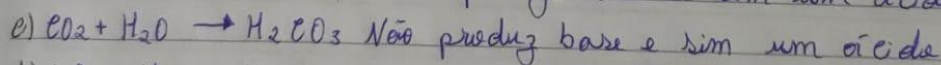 e) CO2 + H2O → H2CO3 Não produz base e sim um ácido